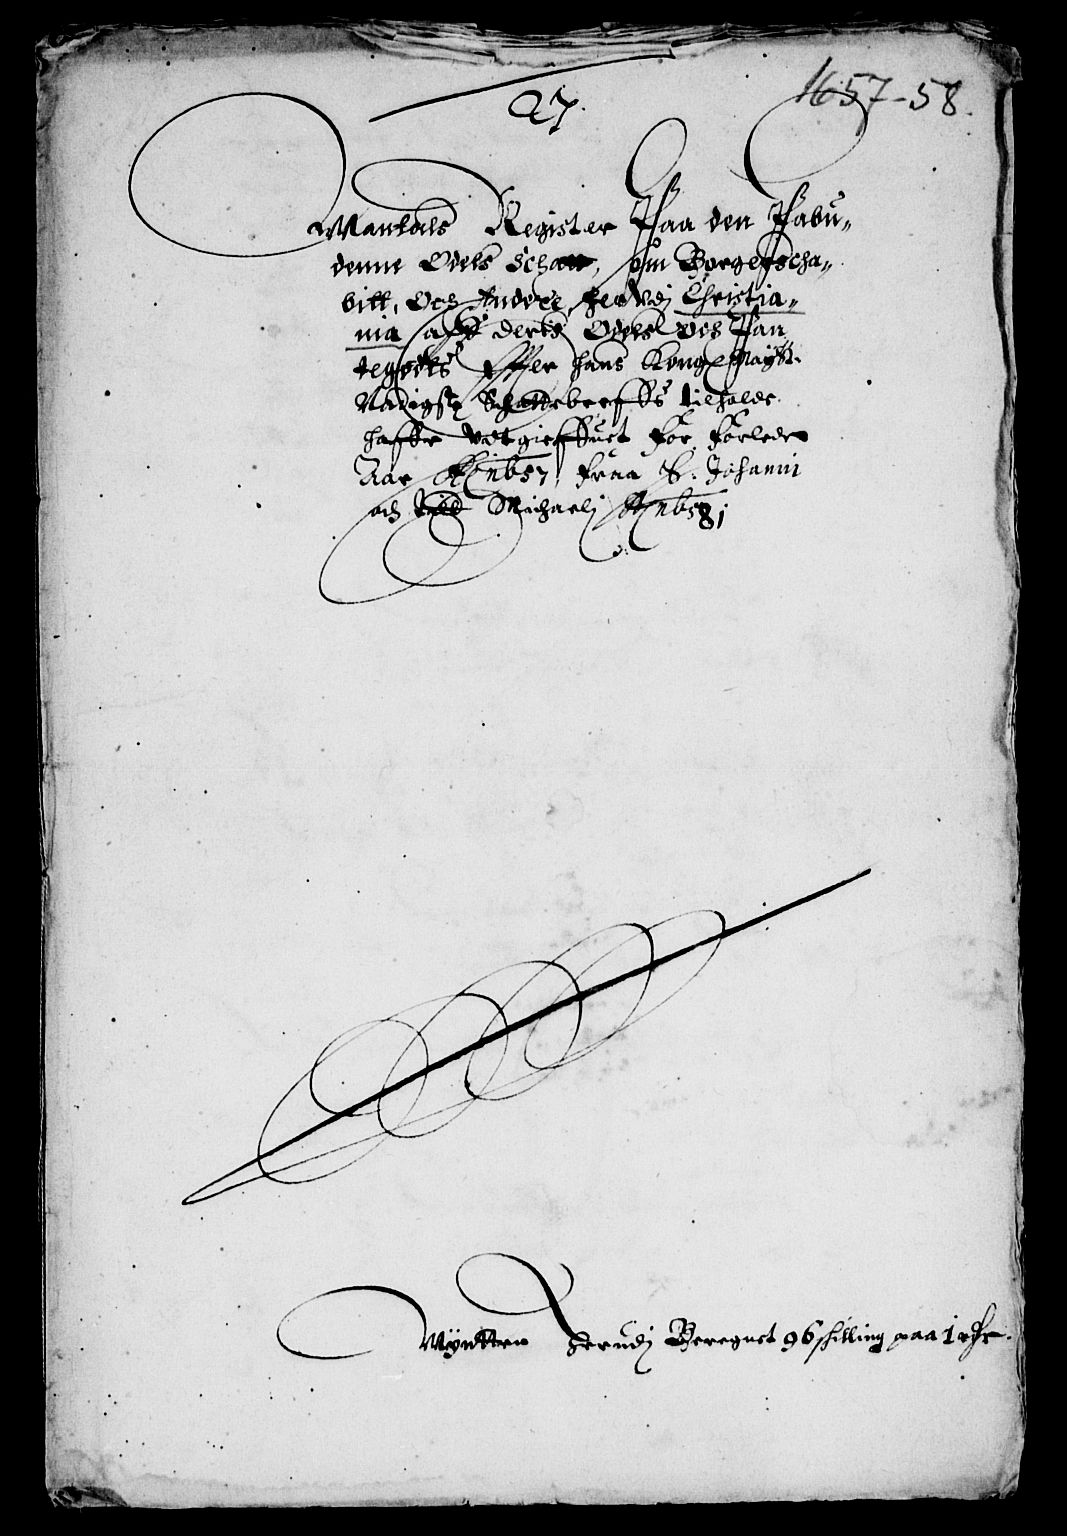 1657-58.
27.
Mantals Register Paa den Paabu-
denne Odels Schatt, som Borgerscha-
bitt, Och Andre her Vdj Christia-
nia aff deris Odels och Pan
tegodts Effter hans Kong Mayts
Naadigste Schattebreffs tilholde
haffr vdtgieffuet for forleden
Aar Ao 1657 fraa S. Johannj
och till Michaelj Ao 1658
Myntten herudj Beregnet 96 schilling paa 1 rdr.